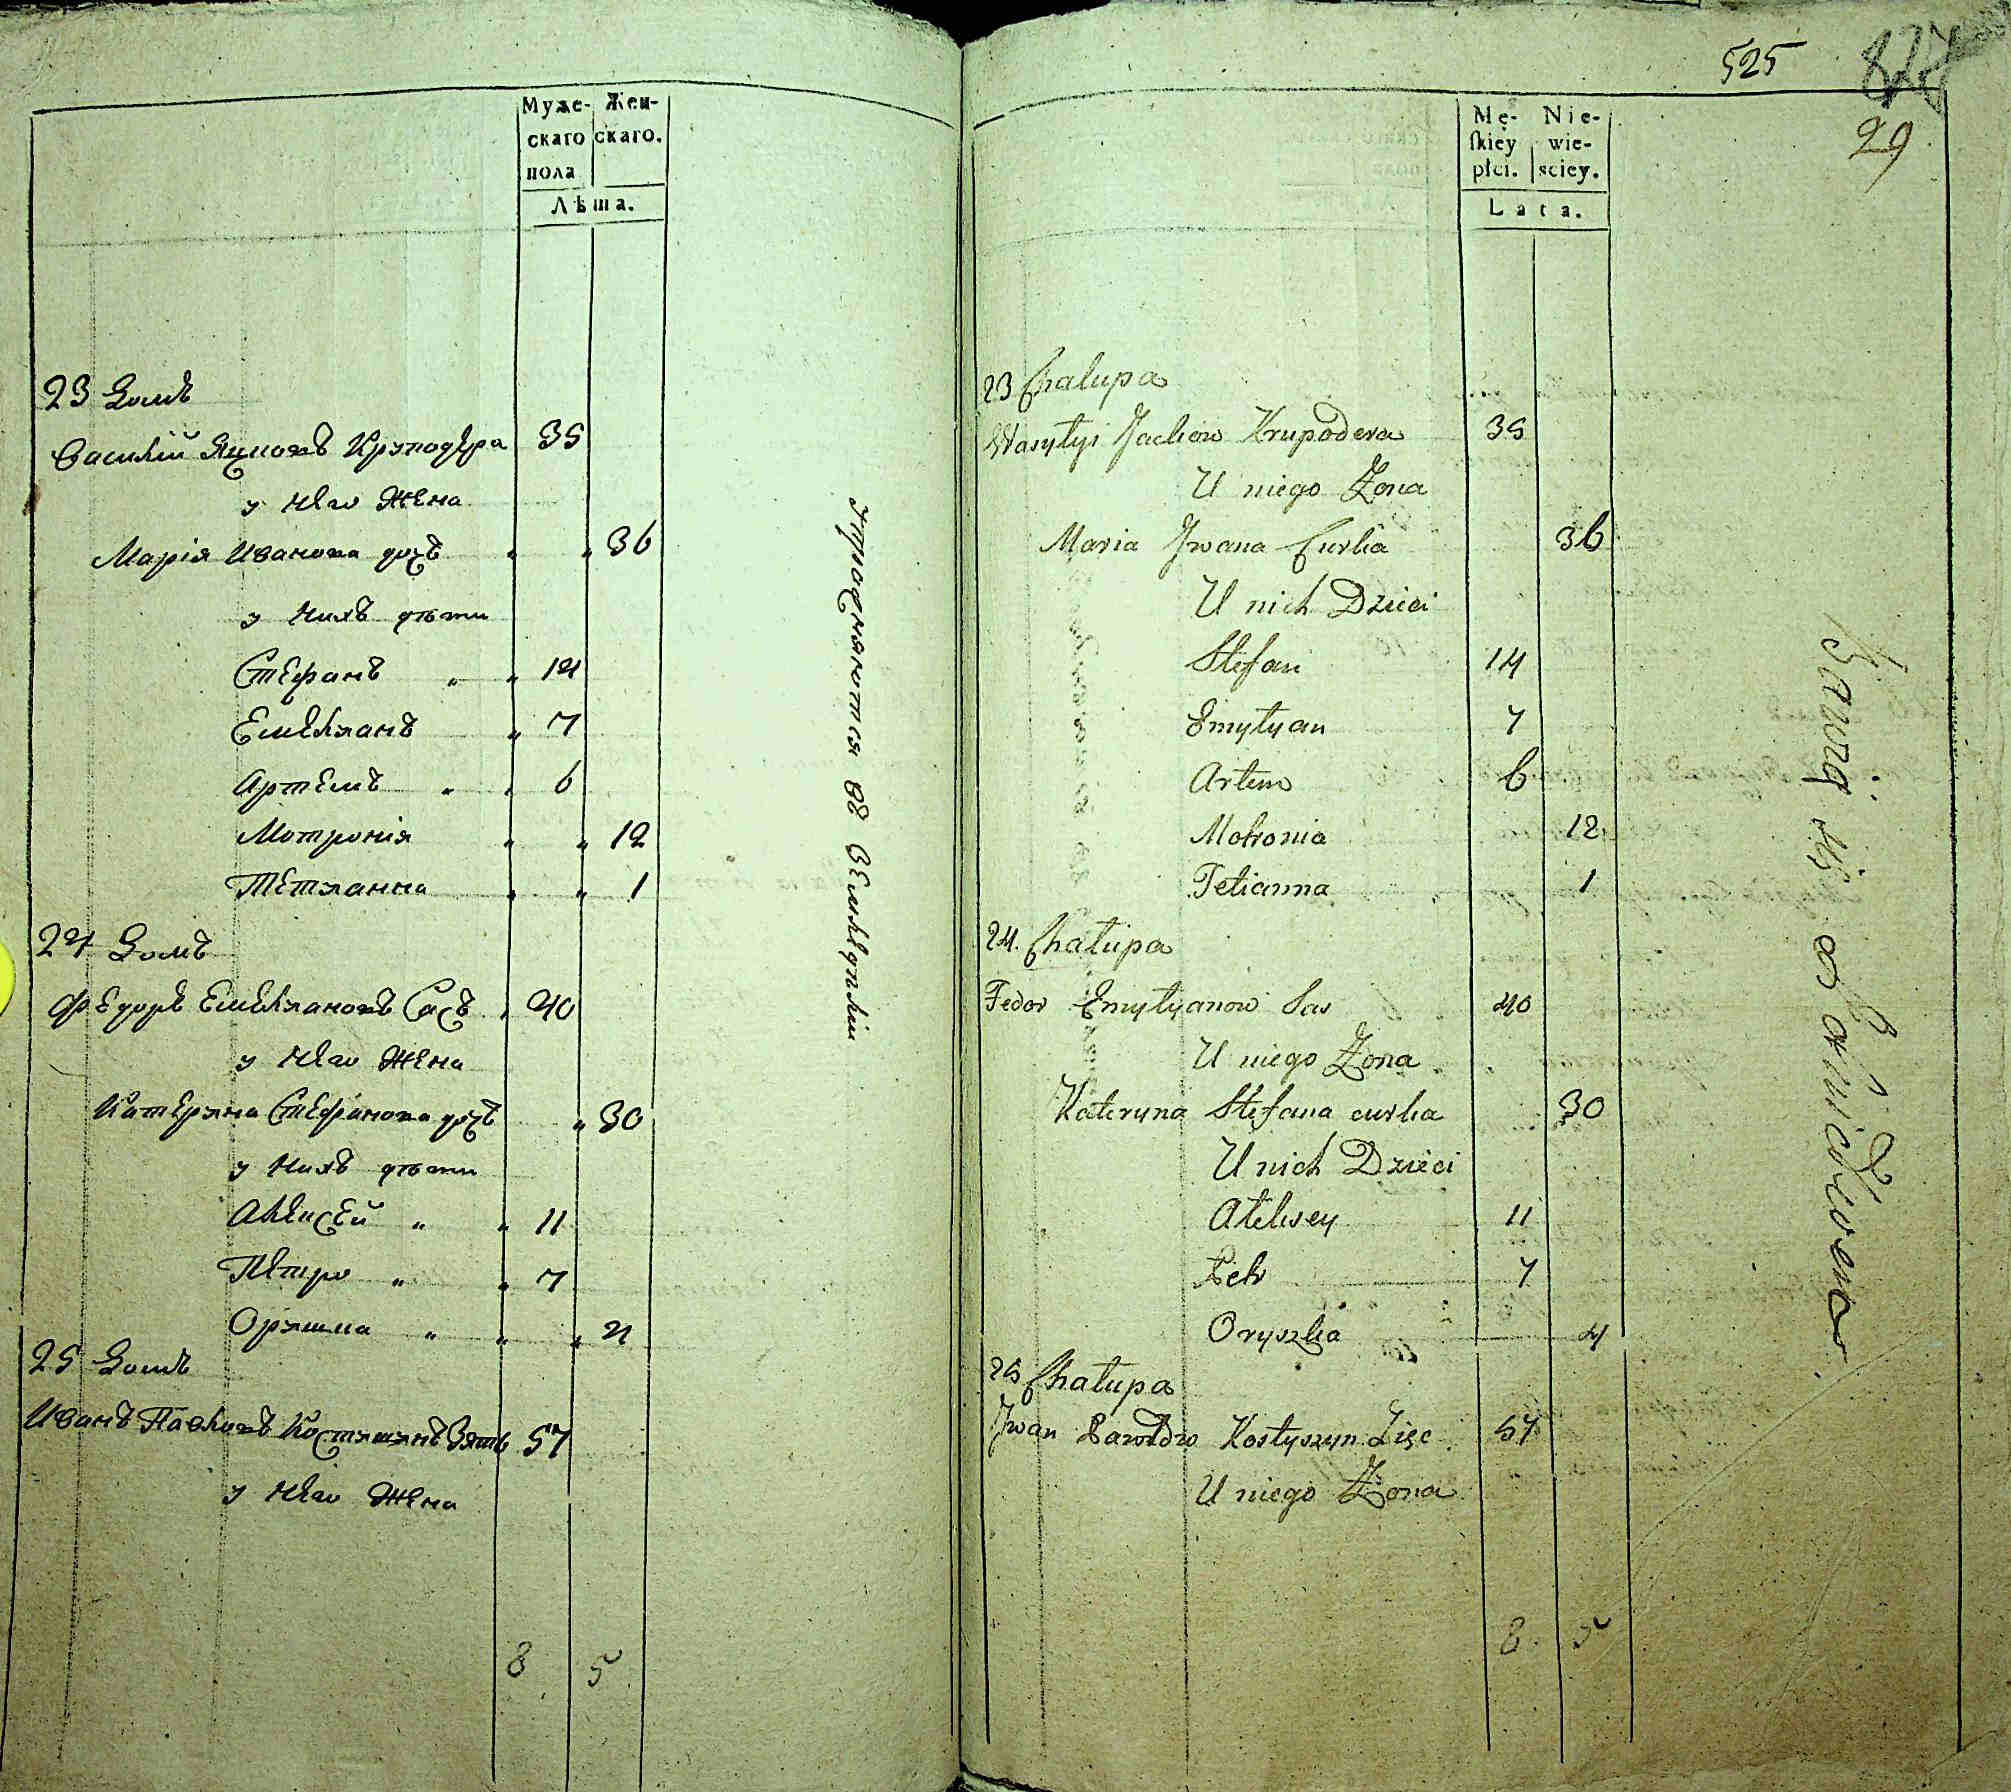 Муже-
скаго
пола
Жен-
скаго.
Лѣта.
23 Домъ
Василий Яцковъ Круподера 35
у него жена
Марія Иванова дочъ " " 36
у нихъ дѣти
Стефанъ " " 14
Емельянъ " 7
Артемъ " " 6
Мотронія " " 12
Тетяанна " " 1
24 Домъ
Федоръ Емельяновъ Сасъ " 40
у него жена
Катерина Стефанова дочъ " 30
у нихъ дѣти
Алексей " " 11
Петро " " 7
Оришка " " " 4
25 Домъ
Иванъ Павловъ Костишинъ Зять 57
у него жена
8 5
Упражняются въ Земледѣліи
525
29
Mę-
skiey
płci.
Nie-
wie-
sciey.
Lata.
23 Chałupa
Wasylyi Jackow Krupodera 35
U niego Żona
Maria Jwana Curka 36
U nich Dzieci
Stefan 14
Emylyan 7
Artem 6
Motronia 12
Tetianna 1
24. Chałupa
Fedor Emylyanow Sas 40
U niego Żona
Kateryna Stefana curka 30
U nich Dzieci
Alexsey 11
Petr 7
Oryszka 4
25 Chałupa
Jwan Pawłow Kostyszyn Zięc 57
U niego Żona
8 5
Bawią się